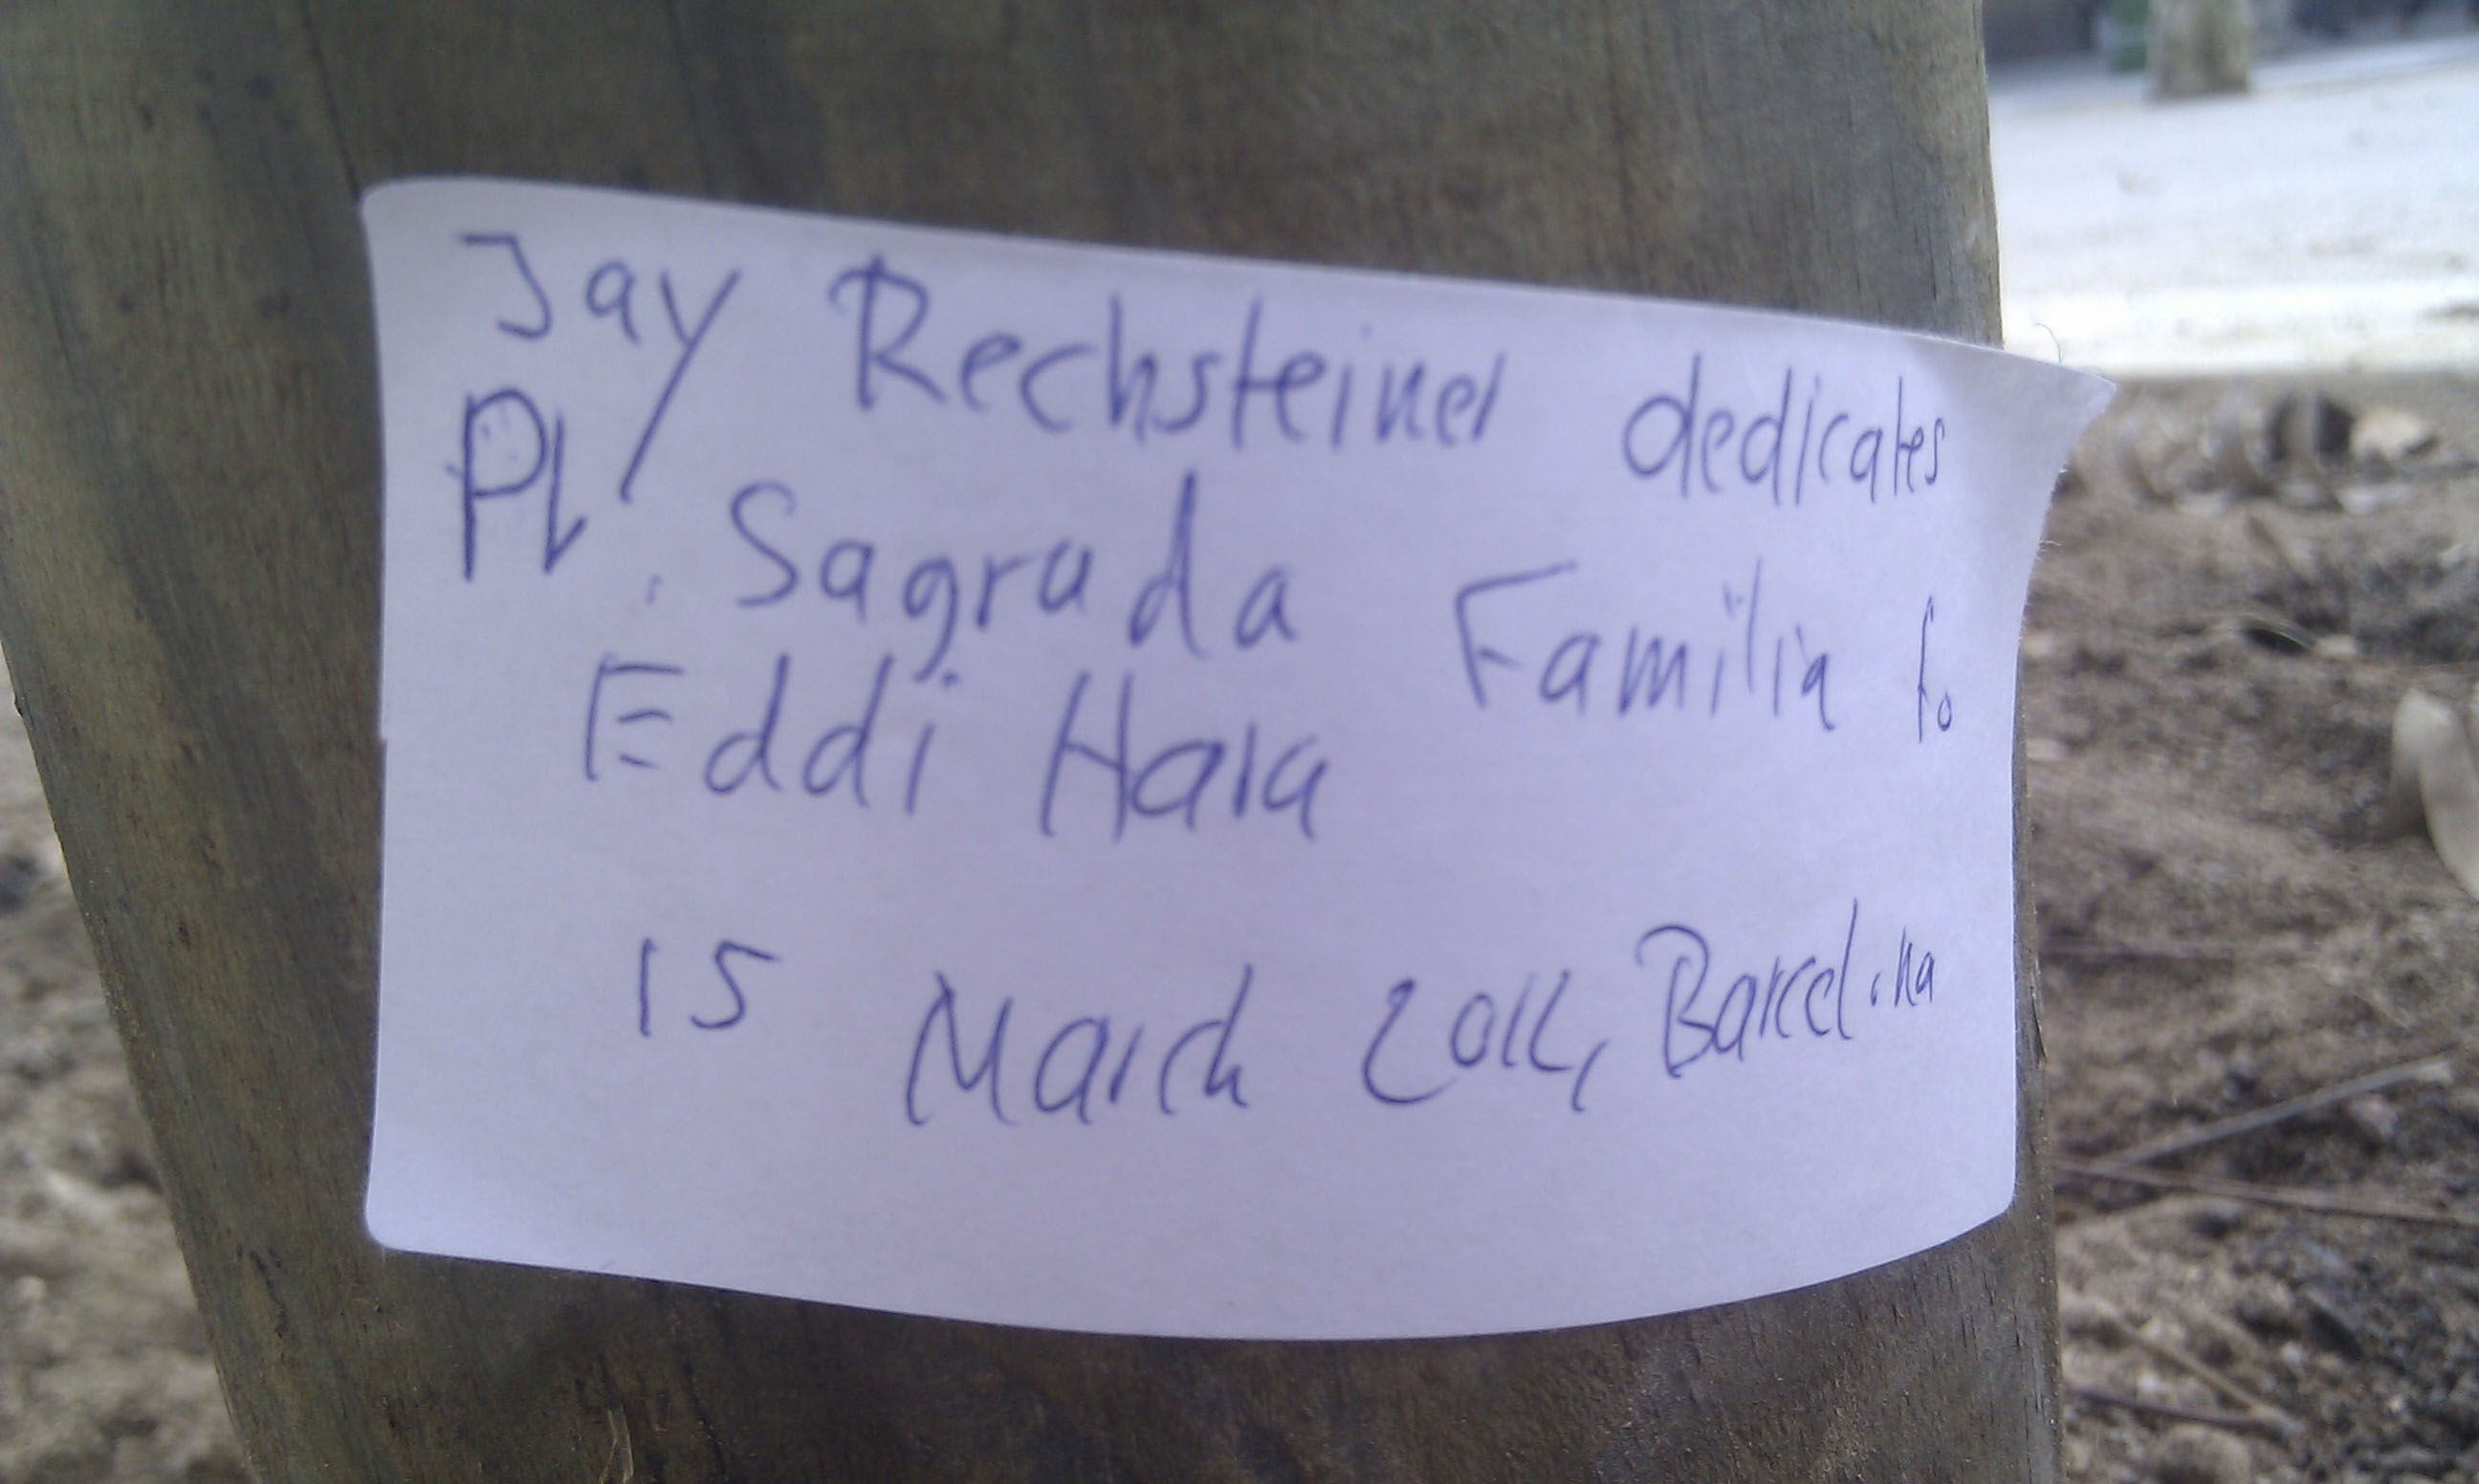 Jay Rechsteiner dedicates
Pl. Sagrada Familia to
Eddi Hara
15 March 2012, Barcelona